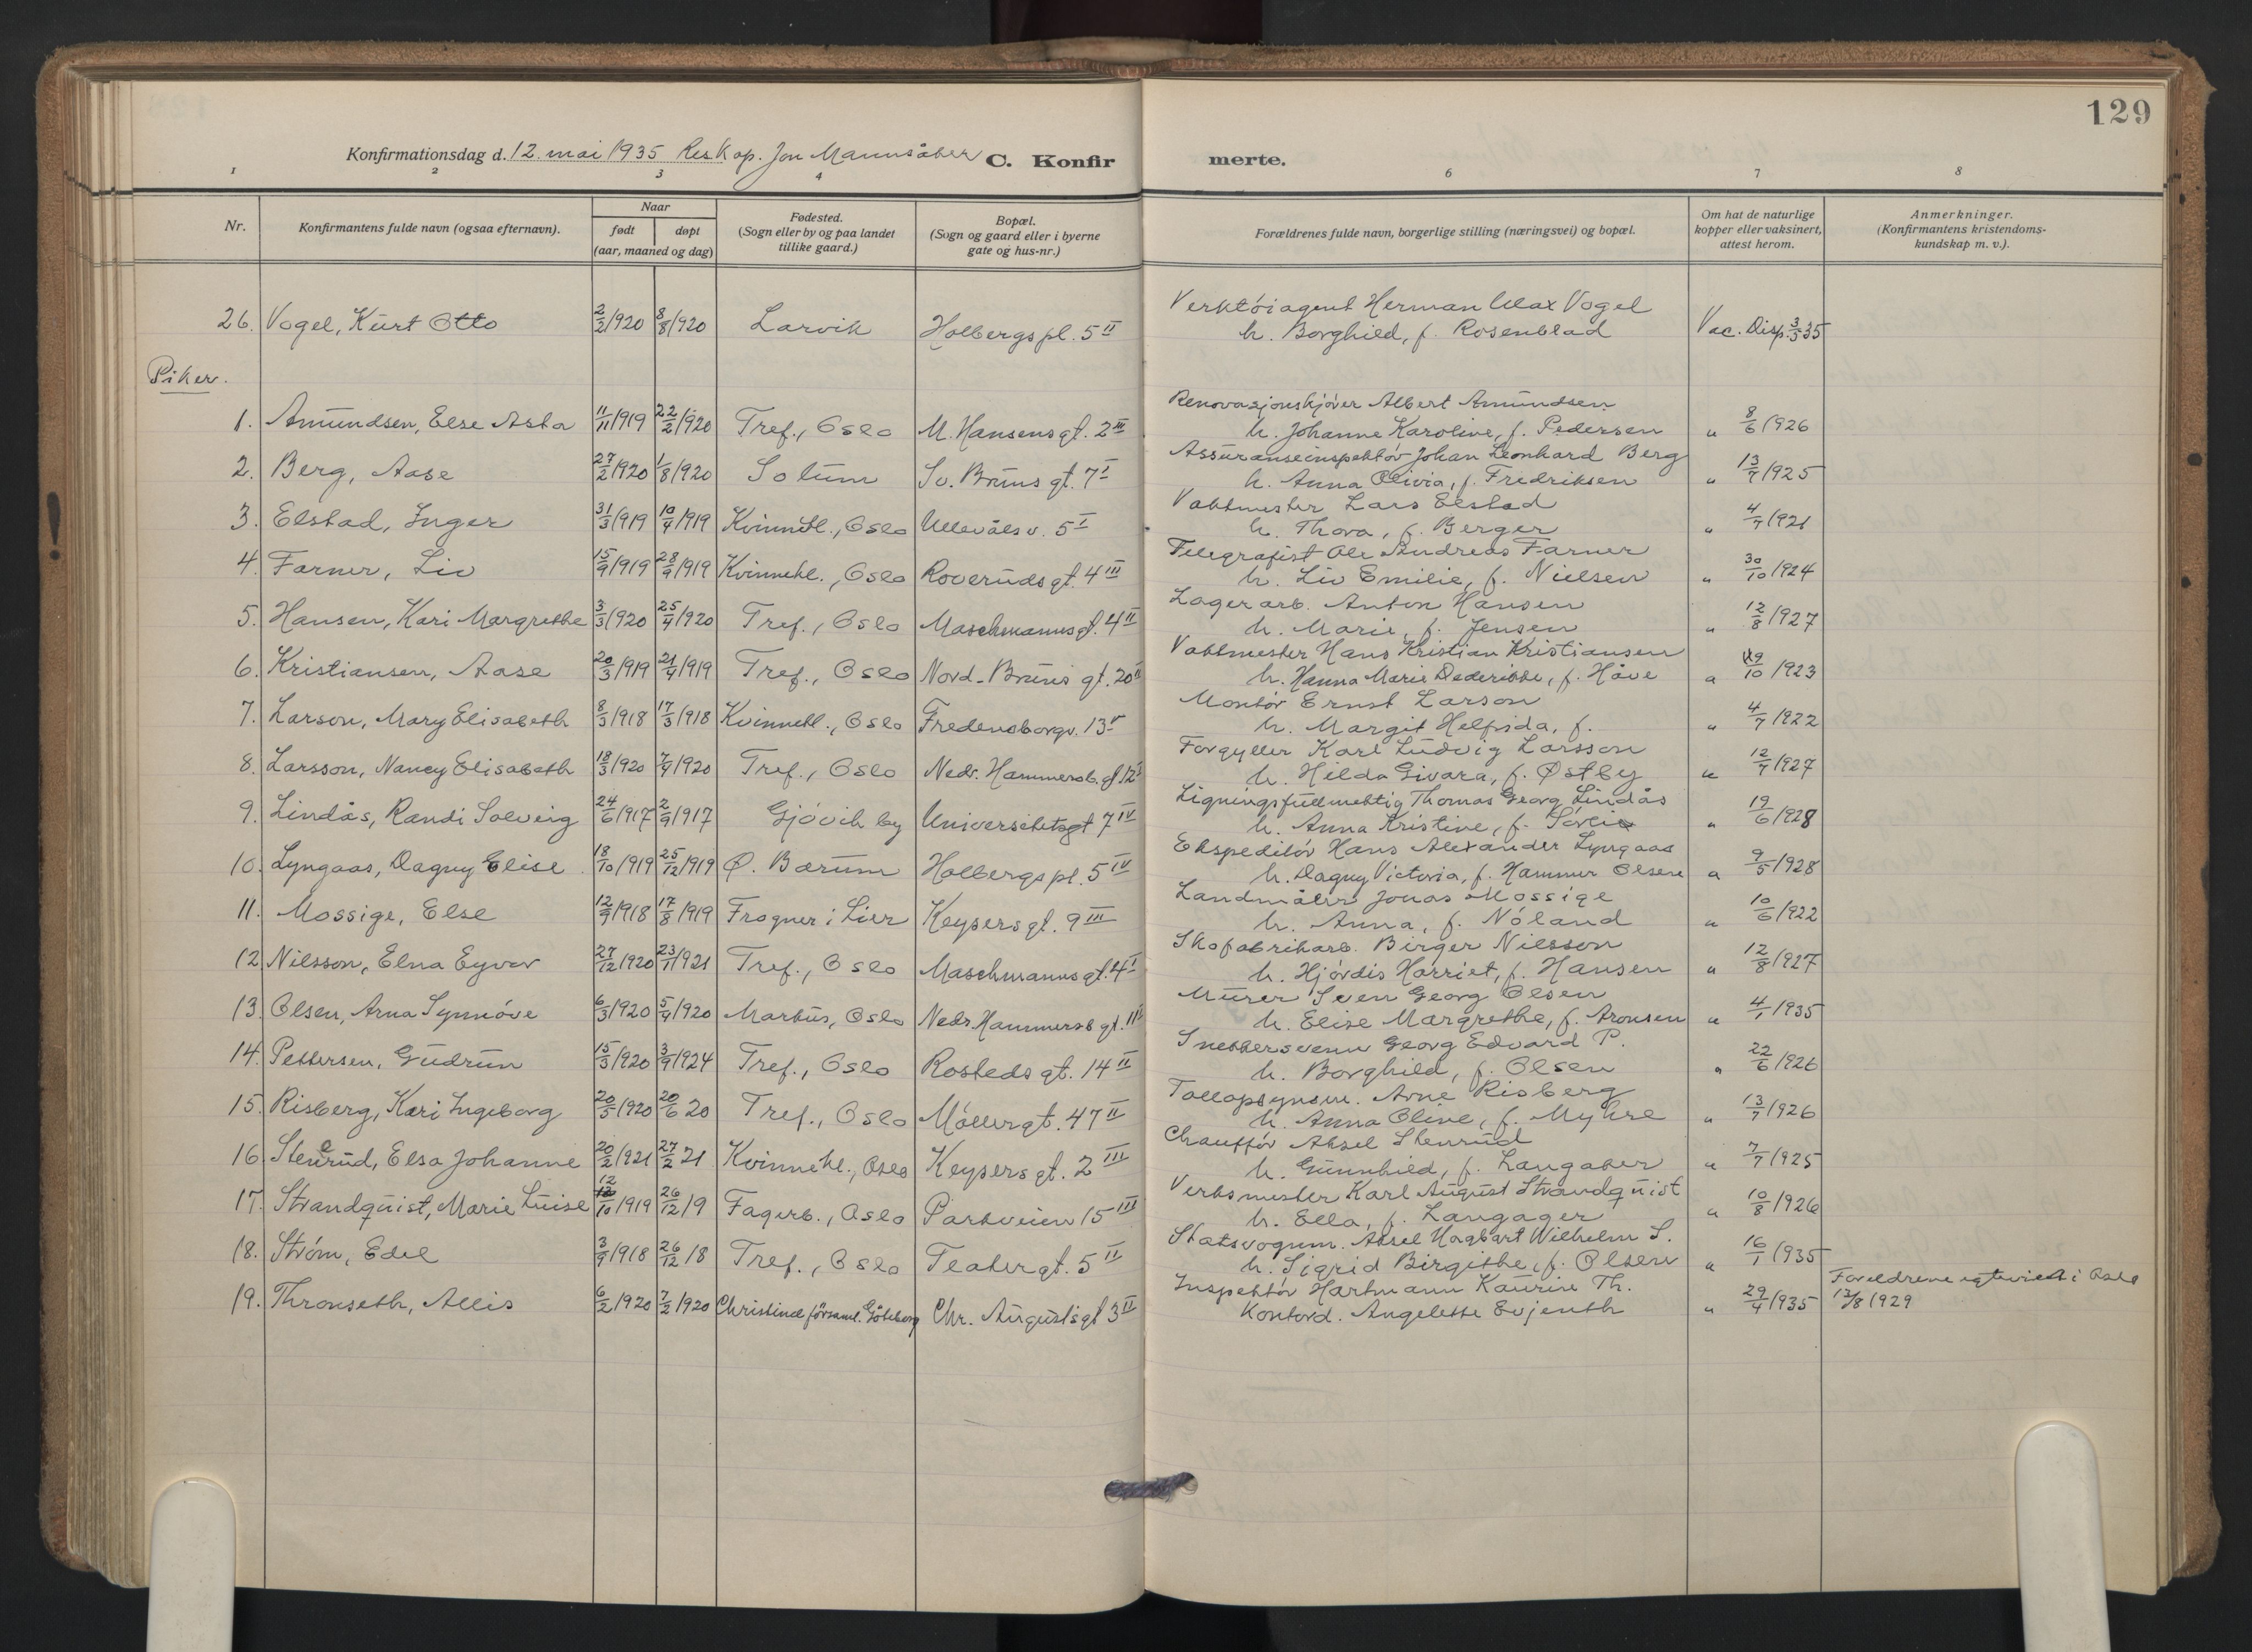 129
Konfirmationsdag d. 12. mai 1935 Res. kap. Jon Mannsåker C. Konfirmerte.
1 2 3 4 6 7 8
Nr. Konfirmantens fulde navn (ogsaa efternavn). Naar født døpt (aar, maaned og dag) Fødested. (Sogn eller by og paa landet tillike gaard.) Bopæl. (Sogn og gaard eller i byerne gate og hus-nr.) Forældrenes fulde navn, borgerlige stilling (næringsvei) og bopæl. Om hat de naturlige kopper eller vaksinert, attest herom. Anmerkninger. (Konfirmantens kristendomskundskap m. v.).
26. Vogel, Kurt Otto 2/2 1920 8/8 1920 Larvik Holbergs pl. 5 II Verktøiagent Herman Max Vogel
h. Borghild, f. Rosenblad Vac. Disp. 3/5 35
Piker.
1. Amundsen, Else Asta 11/11 1919 22/2 1920 Tref., Oslo M. Hansens gt. 2 III Renovasjonskjører Albert Amundsen
h. Johanne Karoline, f. Pedersen " 8/6 1926
2. Berg, Aase 27/2 1920 1/8 1920 Solum So. Bruns gt. 7 I Assuranseinspektør Johan Leonhard Berg
h. Anna Olivia, f. Fredriksen " 13/7 1925
3. Elstad, Inger 31/3 1919 10/4 1919 Kvinnekl., Oslo Ullevålsv. 5 I Vaktmester Lars Elstad
h. Thora, f. Berger " 4/7 1921
4. Farner, Liv 15/9 1919 28/9 1919 Kvinnekl., Oslo Roveruds gt. 4 III Telegrafist Ole Andreas Farner
h. Liv Emilie, f. Nielsen " 30/10 1924
5. Hansen, Kari Margrethe 3/3 1920 25/4 1920 Tref., Oslo Maschmanns gt. 4 II Lagerarb. Anton Hansen
h. Marie, f. Jensen " 12/8 1927
6. Kristiansen, Aase 20/3 1919 21/4 1919 Tref., Oslo Nord. Bruns gt. 20 II Vaktmester Hans Kristian Kristiansen
h. Hanna Marie Dederikke, f. Håve " 19/10 1923
7. Larson, Mary Elisabeth 8/3 1918 17/3 1918 Kvinnekl., Oslo Fredensborgv. 13 V Montør Ernst Larson
h. Margit Helfrida, f. " 4/7 1922
8. Larsson, Nancy Elisabeth 18/3 1920 7/4 1920 Tref., Oslo Nedr. Hammersb. gt. 12 I Forgyller Karl Ludvig Larsson
h. Hilda Givara, f. Østby " 12/7 1927
9. Lindås, Randi Solveig 24/6 1917 2/9 1917 Gjøvik by Universitetsgt 7 IV Ligningsfullmektig Thomas Georg Lindås
h. Anna Kristine, f. " 19/6 1928
10. Lyngaas, Dagny Elise 18/10 1919 25/12 1919 Ø. Bærum Holbergs pl. 5 IV Ekspeditør Hans Alexander Lyngaas
h. Dagny Victoria, f. Hammer Olsen " 9/5 1928
11. Mossige, Else 12/9 1918 17/8 1919 Frogner i Lier Keysers gt. 9 III Landmåler Jonas Mossige
h. Anna, f. Nøland " 10/6 1922
12. Nilsson, Elna Eyvor 27/12 1920 23/1 1921 Tref., Oslo Maschmanns gt. 4 I Skofabrikarb. Birger Nilsson
h. Hjørdis Harriet, f. Hansen " 12/8 1927
13. Olsen, Arna Synnøve 6/3 1920 5/4 1920 Markus, Oslo Nedr. Hammersb gt. 11 I Murer Sven Georg Olsen
h. Elise Margrethe, f. Aronsen " 4/1 1935
14. Pettersen, Gudrun 15/3 1920 3/9 1924 Tref., Oslo Rosteds gt. 14 II Snekkersvenn Georg Edvard P.
h. Borghild, f. Olsen " 22/6 1926
15. Risberg, Kari Ingeborg 20/5 1920 20/6 20 Tref., Oslo Møllergt. 47 II Tollopsynsm. Arne Risberg
h. Anna Oline, f. Myhre " 13/7 1926
16. Stenerud, Elsa Johanne 20/2 1921 27/2 21 Kvinnekl., Oslo Keysers gt. 2 III Chauffør Aksel Stenrud
h. Gunnhild, f. Langaker " 7/7 1925
17. Strandquist, Marie Luise 12/10 1919 26/12 19 Fagerb., Oslo Parkveien 15 III Verksmester Karl August Strandquist
h. Ella, f. Langager " 10/8 1926
18. Strøm, Edel 3/9 1918 26/12 18 Tref., Oslo Teatergt. 5 II Statsvognm. Aksel Hagbart Wilhelm S.
h. Sigrid Birgithe, f. Olsen " 16/1 1935
19. Thronseth, Allis 6/2 1920 7/2 1920 Christinæ församl. Göteborg Chr. Augusts gt 3 II Inspektør Hartmann Kaurin Th.
Kontord. Angelette Evjenth " 29/4 1935 Foreldrene egteviet i Oslo
13/8 1929